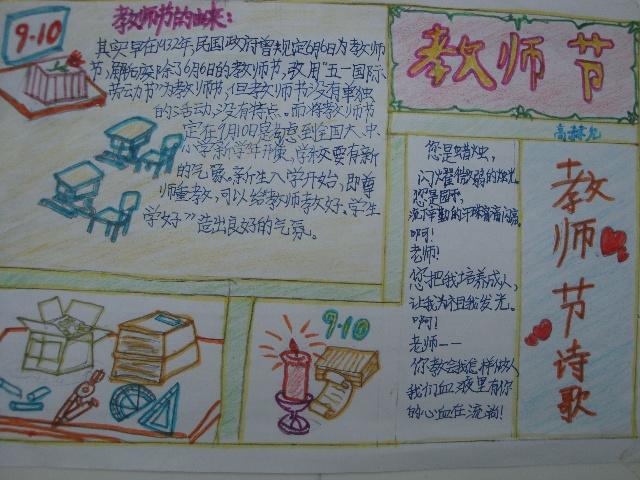 9·10
教师节的由来：
其实早在1932年，民国政府曾规定6月6日为教师
节，解放后废除了6月6日的教师节，改用“五一国际
劳动节”为教师节，但教师节没有单独
的活动，没有特点。而将教师节
定在9月10日是考虑到全国大、中
小学新学年开始，学校要有新
的气氛。新生入学开始，即尊
师重教，可以给教师教好、学生
学好”造出良好的气氛。
教师节
您是蜡烛，
闪烁着微弱的烛光。
您是园丁，
流下辛勤的汗珠
啊！
老师！
您把我培养成人，
让我为祖国发光。
啊！
老师——
你教会我怎样做人
我们血液里有你
的心血在流淌！
教师节诗歌
9·10